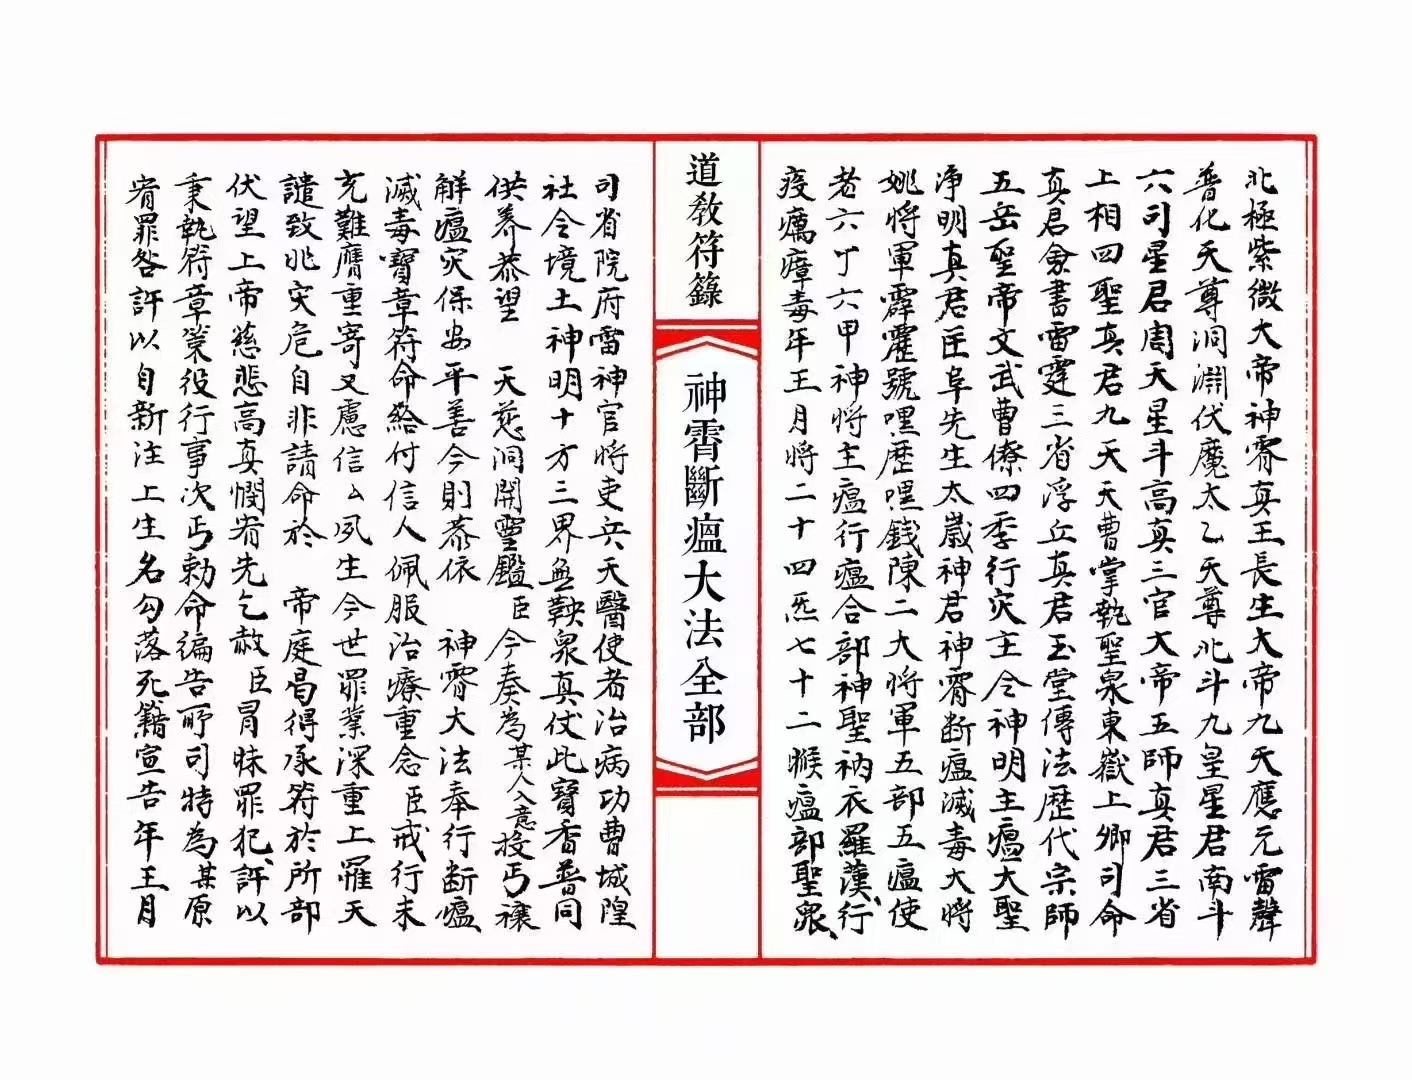 北極紫微大帝神霄真王長生大帝九天應元雷聲
普化天尊洞淵伏魔太乙天尊北斗九皇星君南斗
六司星君周天星斗高真三官大帝五師真君三省
上相四聖真君九天天曹掌執聖衆東嶽上卿司命
真君僉書雷霆三省浮丘真君玉堂傳法歷代宗師
五岳聖帝文武曹僚四季行灾主令神明主瘟大聖
淨明真君匡阜先生太歲神君神霄断瘟滅毒大將
姚將軍霹靂號哩歷哩錢陳二大將軍五部五瘟使
者六丁六甲神將主瘟行瘟合部神聖衲衣羅漢、行
疫癘瘴毒年王月將二十四炁七十二候瘟部聖衆、
道教符籙
神霄斷瘟大法全部
司省院府雷神官將吏兵天醫使者治病功曹城隍
社令境土神明十方三界無鞅衆真仗此寶香普同
供养恭望 天慈洞開靈鑑臣今奏為某人入意投丐禳
解瘟灾保安平善今則恭依 神霄大法奉行断瘟
滅毒寶章符命給付信人佩服治療重念臣戒行未
充難膺重寄又慮信厶夙生今世罪業深重上罹天
譴致兆灾危自非請命於 帝庭曷得承符於所部
伏望上帝慈悲高真憫宥先乞赦臣冒昧罪犯許以
秉執符章策役行事次丐勅命徧告所司特為某原
宥罪咎許以自新注上生名勾落死籍宣告年王月